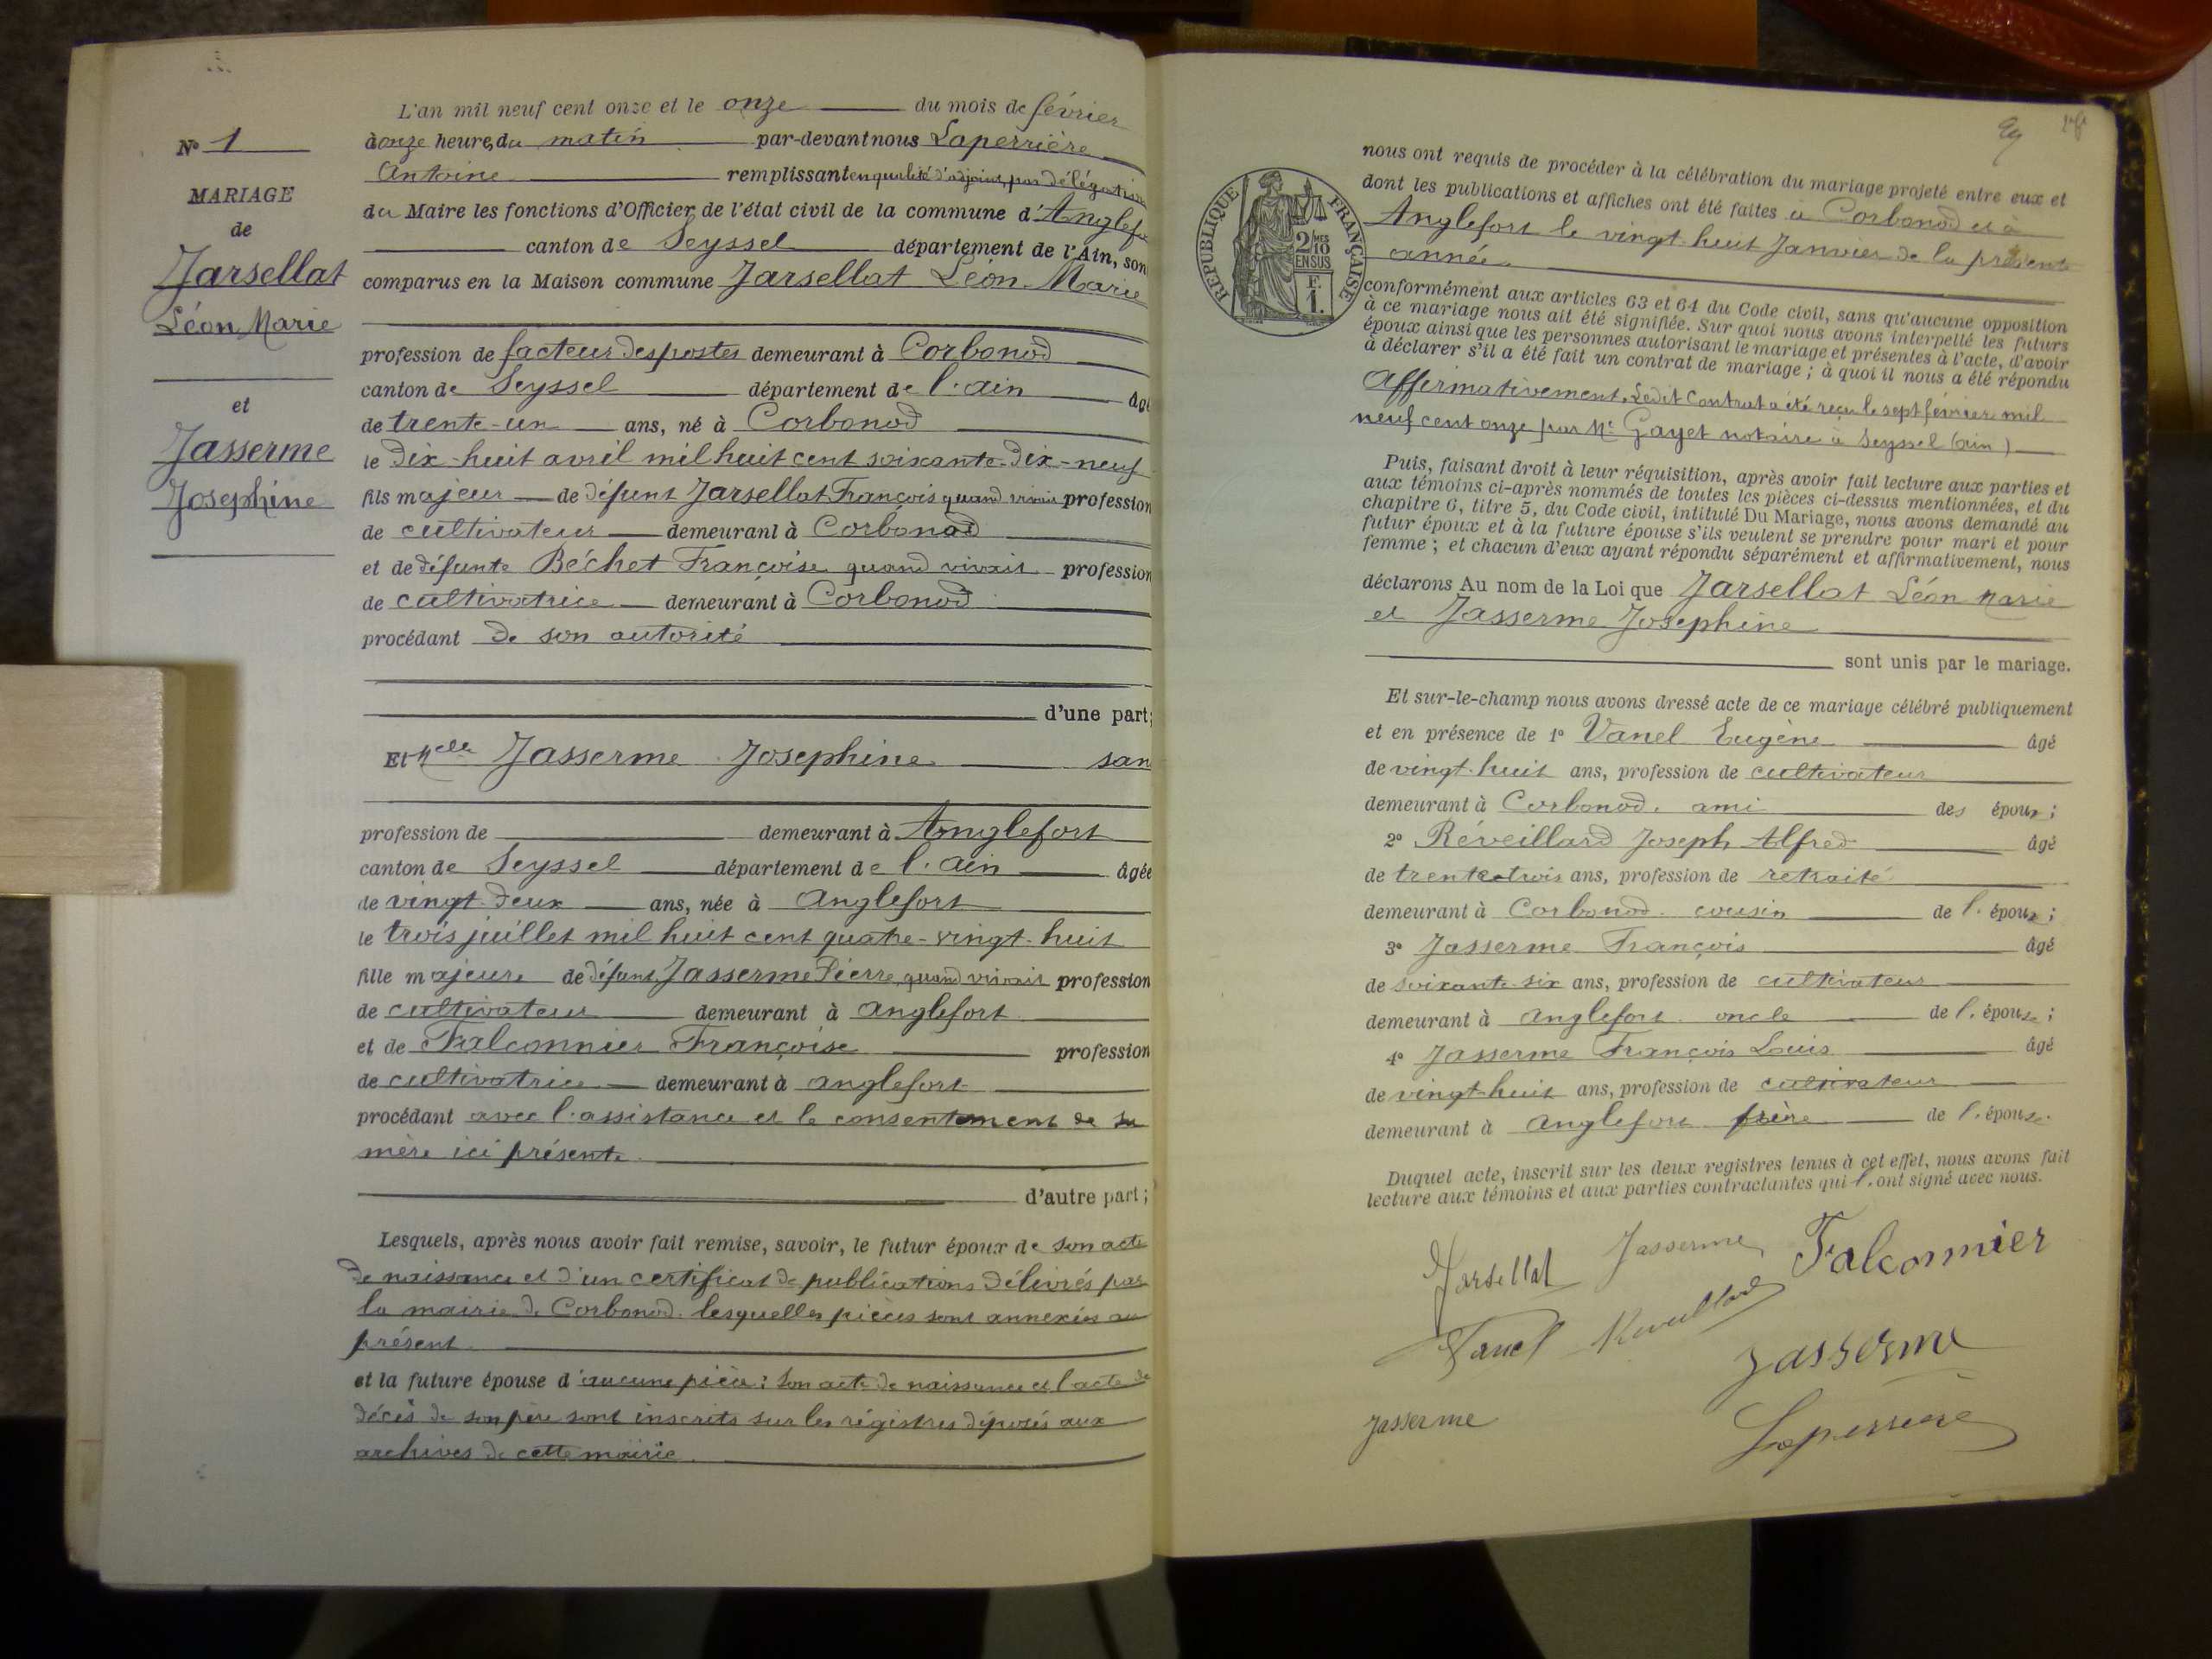 L'an mil neuf cent onze et le onze du mois de février
N° 1
à onze heures du matin par-devant nous Laperrière
Antoine remplissant en qualité d'adjoint, par délégation
MARIAGE
de
du Maire les fonctions d'Officier de l'état civil de la commune d'Anglefo
canton de Seyssel département de l'Ain, son
Jarsellat
Léon Marie
comparus en la Maison commune Jarsellat Léon Marie
profession de facteur des postes demeurant à Corbonod
et
canton de Seyssel département de l'ain âgé
de trente-un ans, né à Corbonod
Jasserme
Josephine
le dix-huit avril mil huit cent soixante-dix-neuf
fils majeur de défunt Jarsellat François quand vivait profession
de cultivateur demeurant à Corbonod
et de défunte Béchet Françoise quand vivait profession
de cultivatrice demeurant à Corbonod
procédant de son autorité
d'une part;
Et Melle Jasserme Josephine san
profession de demeurant à Anglefort
canton de Seyssel département de l'ain âgée
de vingt-deux ans, née à Anglefort
le trois juillet mil huit cent quatre-vingt-huit
fille majeure de défunt Jasserme Pierre, quand vivait profession
de cultivateur demeurant à Anglefort
et de Falconnier Françoise profession
de cultivatrice demeurant à Anglefort
procédant avec l'assistance et le consentement de sa
mère ici présente
d'autre part;
Lesquels, après nous avoir fait remise, savoir, le futur époux de son acte
de naissance et d'un certificat de publications délivrés par
la mairie de Corbonod. lesquelles pièces sont annexées au
présent.
et la future épouse d'aucune pièce; son acte de naissance et l'acte de
décès de son père sont inscrits sur les régistres déposés aux
archives de cette mairie.
RÉPUBLIQUE FRANÇAISE
2/10 MES
EN SUS
F.
1.
nous ont requis de procéder à la célébration du mariage projeté entre eux et
dont les publications et affiches ont été faites à Corbonod et à
Anglefort le vingt-huit Janvier de la présente
année.
conformément aux articles 63 et 64 du Code civil, sans qu'aucune opposition
à ce mariage nous ait été signifiée. Sur quoi nous avons interpellé les futurs
époux ainsi que les personnes autorisant le mariage et présentes à l'acte, d'avoir
à déclarer s'il a été fait un contrat de mariage; à quoi il nous a été répondu
Affirmativement. Ledit Contrat a été reçu le sept février mil
neuf cent onze par Me Gayet notaire à Seyssel (ain)
Puis, faisant droit à leur réquisition, après avoir fait lecture aux parties et
aux témoins ci-après nommés de toutes les pièces ci-dessus mentionnées, et du
chapitre 6, titre 5, du Code civil, intitulé Du Mariage, nous avons demandé au
futur époux et à la future épouse s'ils veulent se prendre pour mari et pour
femme; et chacun d'eux ayant répondu séparément et affirmativement, nous
déclarons Au nom de la Loi que Jarsellat Léon Marie
et Jasserme Josephine
sont unis par le mariage.
Et sur-le-champ nous avons dressé acte de ce mariage célébré publiquement
et en présence de 1° Vanel Eugène âgé
de vingt-huit ans, profession de cultivateur
demeurant à Corbonod. ami des époux;
2° Réveillard Joseph Alfred âgé
de trente-trois ans, profession de retraité
demeurant à Corbonod. cousin de l'époux;
3° Jasserme François âgé
de soixante-six ans, profession de cultivateur
demeurant à Anglefort oncle de l'épouse;
4° Jasserme François Louis âgé
de vingt-huit ans, profession de cultivateur
demeurant à Anglefort frère de l'épouse.
Duquel acte, inscrit sur les deux registres tenus à cet effet, nous avons fait
lecture aux témoins et aux parties contractantes qui l'ont signé avec nous.
Jarsellat Jasserme Falconnier
Vanel Réveillard
Jasserme
Jasserme
Laperrière